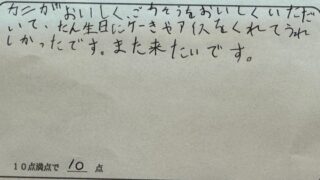 カニがおいしく、ごちそうをおいしくいただ
いて、たん生日にケーきやアイスをくれてうれ
しかったです。また来たいです。
10点満点で 10 点